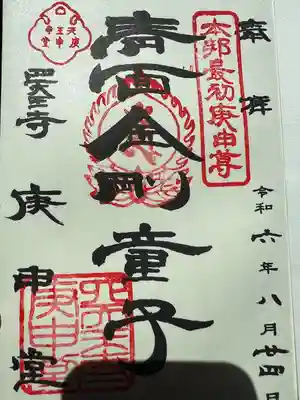 奉拝
本邦最初庚申尊
令和六年八月廿四日
青面金剛童子
四天王寺
庚申堂
四天王寺
庚申堂